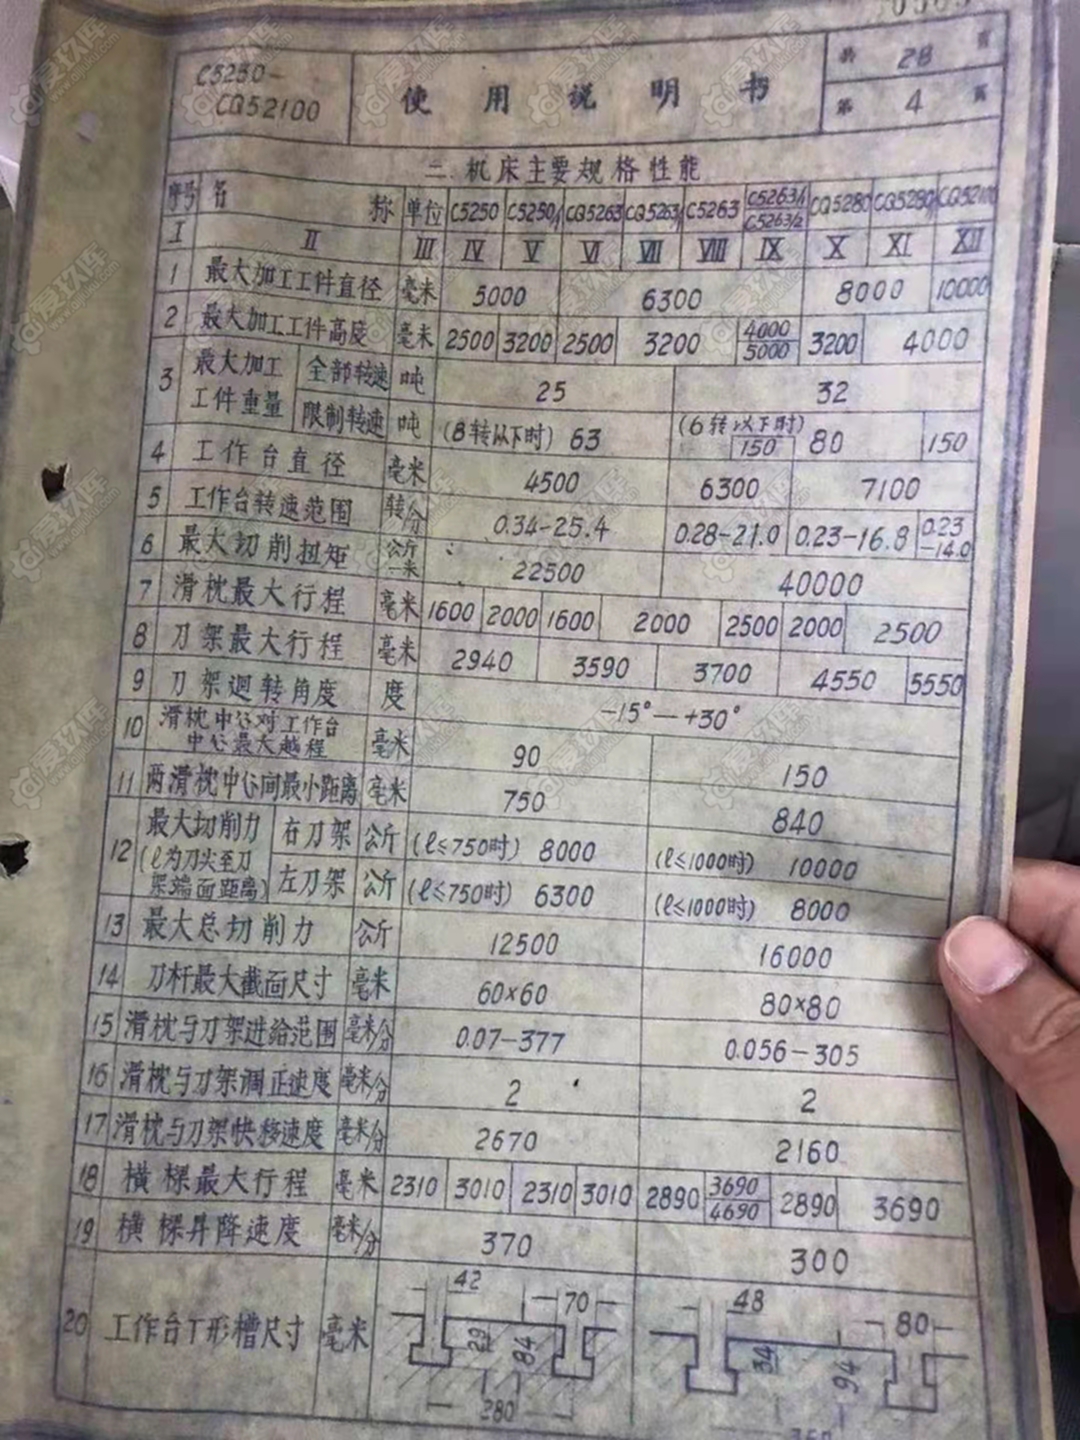 C5250-
CQ52100
使用说明书
共 28 页
第 4 页
二 机床主要规格性能
序号 名称 单位 C5250 C5250/1 CQ5263 CQ5263/1 C5263 C5263/1 C5263/2 CQ5280 CQ5280/1 CQ52100
I II III IV V VI VII VIII IX X XI XII
1 最大加工工件直径 毫米 5000 6300 8000 10000
2 最大加工工件高度 毫米 2500 3200 2500 3200 4000 5000 3200 4000
3 最大加工工件重量 全部转速 吨 25 32
限制转速 吨 (8转以下时) 63 (6转以下时) 150 80 150
4 工作台直径 毫米 4500 6300 7100
5 工作台转速范围 转/分 0.34-25.4 0.28-21.0 0.23-16.8 0.23-14.0
6 最大切削扭矩 公斤-米 22500 40000
7 滑枕最大行程 毫米 1600 2000 1600 2000 2500 2000 2500
8 刀架最大行程 毫米 2940 3590 3700 4550 5550
9 刀架迴转角度 度 -15°—+30°
10 滑枕中心对工作台中心最大越程 毫米 90 150
11 两滑枕中心间最小距离 毫米 750 840
12 最大切削力(ℓ为刀尖至刀架端面距离) 右刀架 公斤 (ℓ≤750时) 8000 (ℓ≤1000时) 10000
左刀架 公斤 (ℓ≤750时) 6300 (ℓ≤1000时) 8000
13 最大总切削力 公斤 12500 16000
14 刀杆最大截面尺寸 毫米 60×60 80×80
15 滑枕与刀架进给范围 毫米/分 0.07-377 0.056-305
16 滑枕与刀架调正速度 毫米/分 2 2
17 滑枕与刀架快移速度 毫米/分 2670 2160
18 横樑最大行程 毫米 2310 3010 2310 3010 2890 3690 4690 2890 3690
19 横樑升降速度 毫米/分 370 300
20 工作台T形槽尺寸 毫米
42 70 29 84 280
48 80 34 94